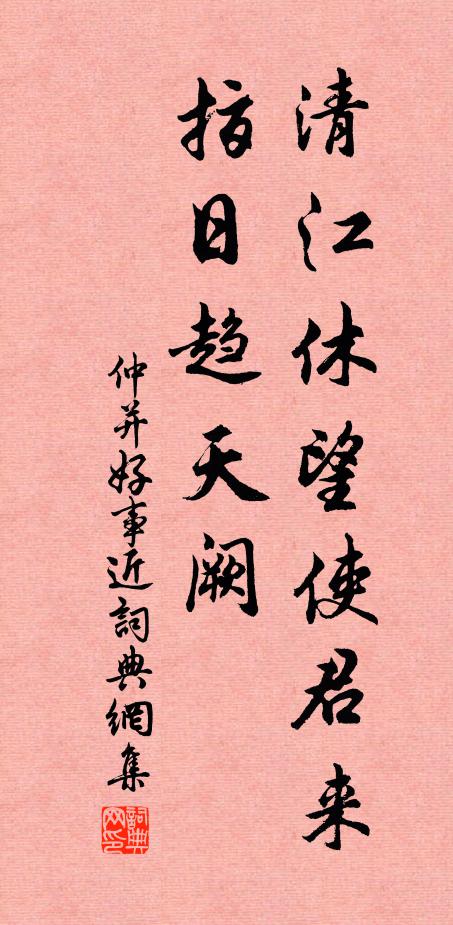 清江休望使君来
指日趋天阙
仲并好事近詞典網集
詞典网印